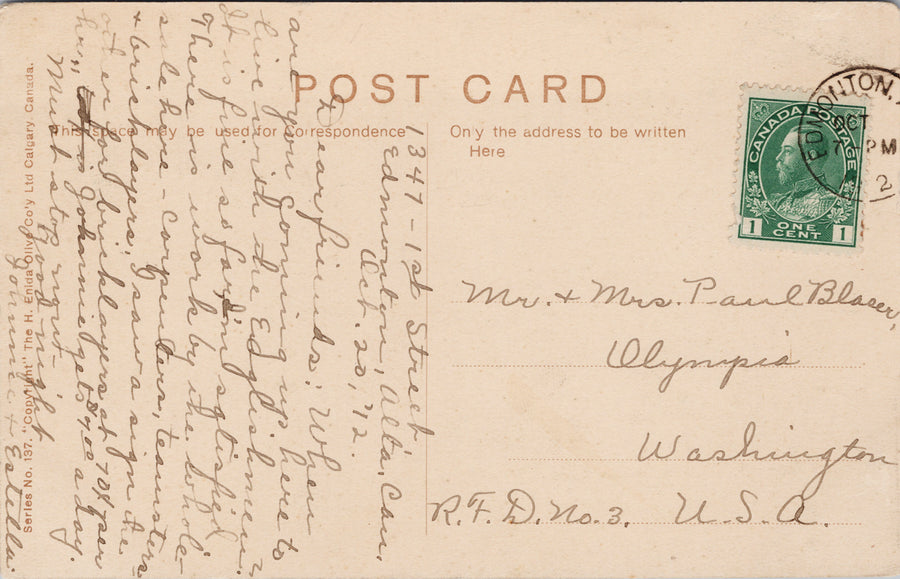 POST CARD
This space may be used for Correspondence
Only the address to be written
Here
CANADA POSTAGE
1 ONE CENT 1
EDMONTON,
OCT
7 PM
12
Mr. + Mrs. Paul Blaser,
Olympia
Washington
R.F.D. No. 3. U.S.A.
1347-1st Street
Edmonton, Alta, Can,
Oct. 20, '12.
Dear friends: When
are you coming up here to
live with the Edglishmen?
It is fine so far. I'm sqtisfied
There is work by the whole-
sale here - carpenters, teamsters
+ bricklayers, I saw a sign the
other for bricklayers at 70¢ per
hour. Johnnie gets $4.00 a day.
Must stop now -
Good night
Johnnie + Estella.
Series No. 137. "Copyright" The H. Enida Olive Co'y Ltd Calgary, Canada.